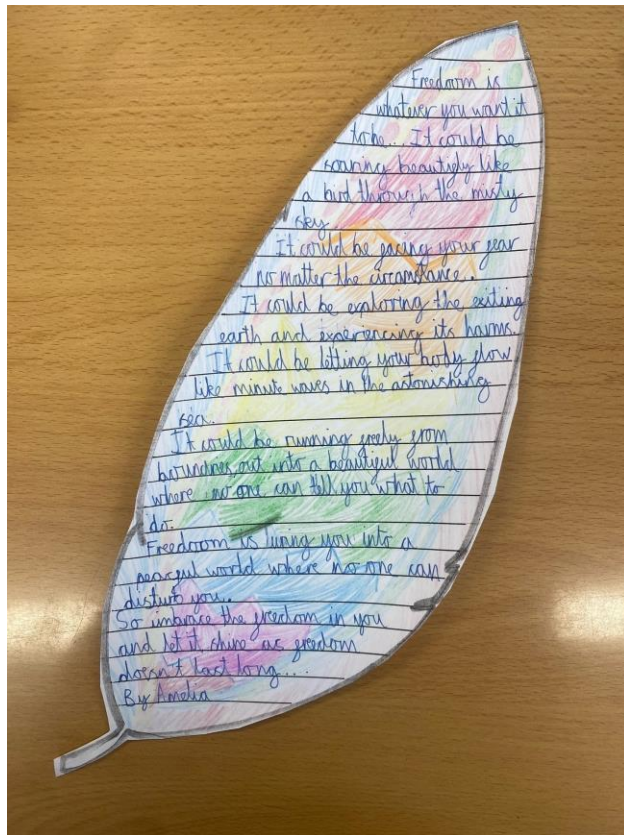 Freedoom is
whatever you want it
to be... It could be
soaring beautifly like
a bird through the misty
sky.
It could be facing your fear
no matter the circamstance.
It could be exploring the exiting
earth and experiencing its harms.
It could be letting your body flow
like minute waves in the astonishing
sea.
It could be running freely from
boundries out into a beautiful world
where no one can tell you what to
do.
Freedoom is luring you into a
peacful world where no one can
disturb you..
So imbrace the freedom in you
and let it shine as freedom
doesn't last long....
By Amelia